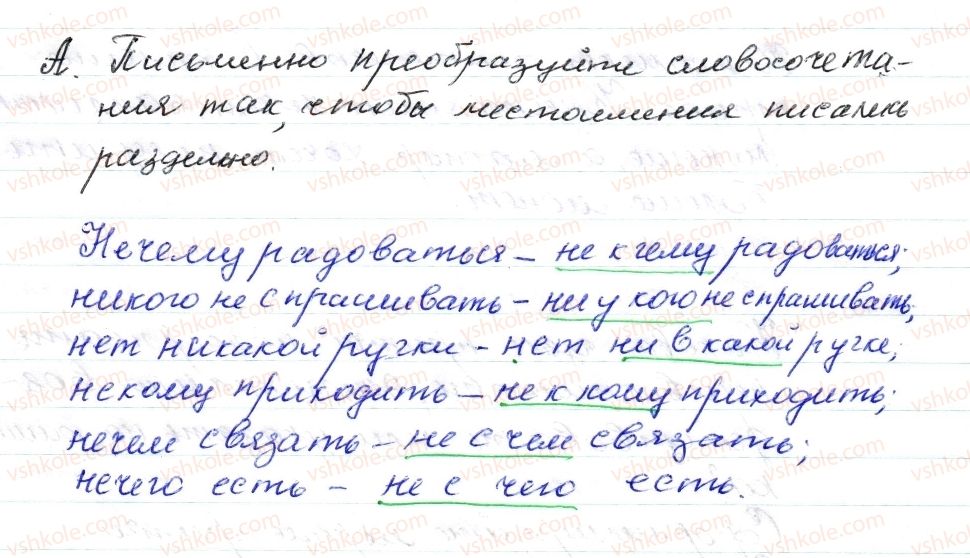 А. Письменно преобразуйте словосочета-
ния так, чтобы местоимения писались
раздельно.
Нечему радоваться – не к чему радоваться;
никого не спрашивать – ни у кого не спрашивать;
нет никакой ручки – нет ни в какой ручке;
некому приходить – не к кому приходить;
нечем связать – не с чем связать;
нечего есть – не с чего есть.